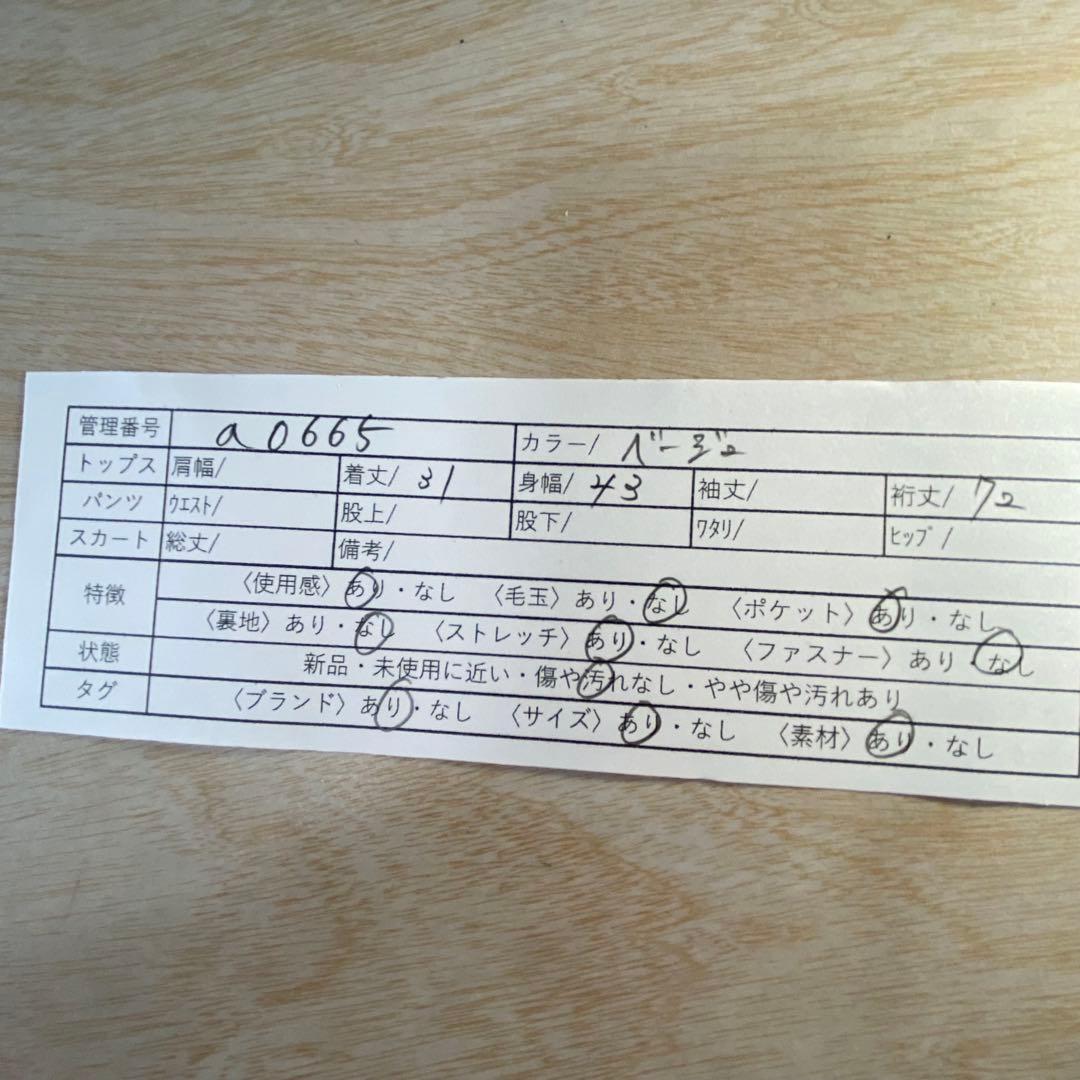 管理番号 a0665 カラー/ ベージュ
トップス 肩幅/ 着丈/ 31 身幅/ 43 袖丈/ 裄丈/ 72
パンツ ウエスト/ 股上/ 股下/ ワタリ/ ヒップ/
スカート 総丈/ 備考/
特徴 〈使用感〉あり・なし 〈毛玉〉あり・なし 〈ポケット〉あり・なし
〈裏地〉あり・なし 〈ストレッチ〉あり・なし 〈ファスナー〉あり・なし
状態 新品・未使用に近い・傷や汚れなし・やや傷や汚れあり
タグ 〈ブランド〉あり・なし 〈サイズ〉あり・なし 〈素材〉あり・なし